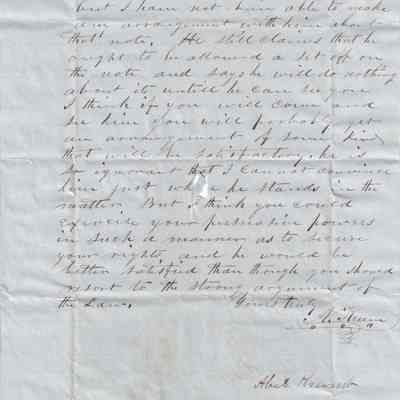 but I have not been able to make
an arrangement with him about
that note. He still claims that he
ought to be allowed a set off on
the note and says he will do nothing
about it untill he can see you
I think if you will come and
see him you will probably get
an arrangement of some kind
that will be satisfactory, he is
so ignorant that I can not convince
him just where he stands in the
matter. But I think you could
exercise your persuasive powers
in such a manner as to secure
your rights and he would be
better satisfied than though you should
resort to the strong argument of
the Law. Yours truly